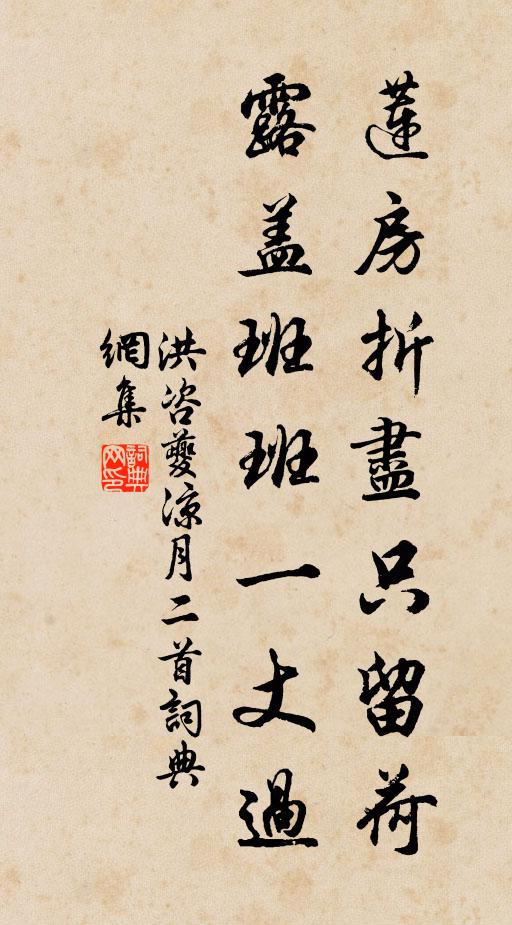 蓮房折盡只留荷
露盖班班一丈過
洪咨夔凉月二首詞典
網集
詞典
网印